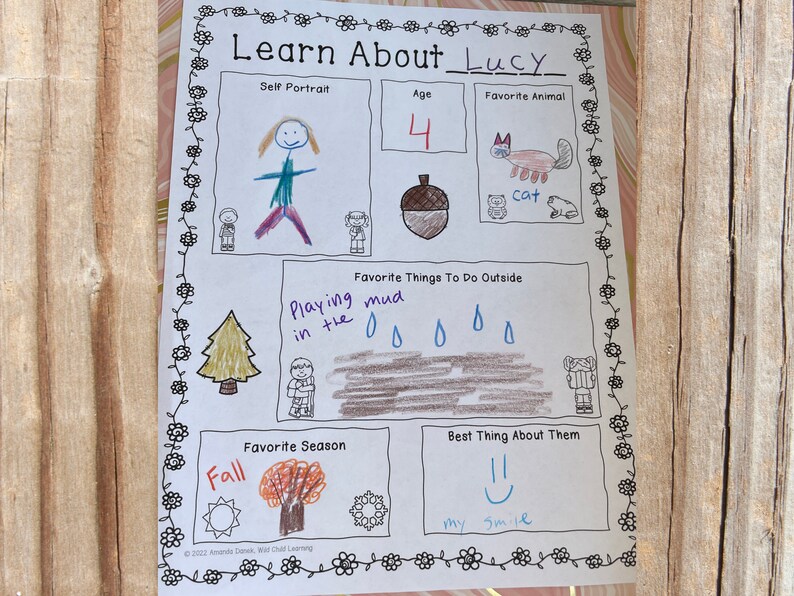 Learn About Lucy
Self Portrait
Age
4
Favorite Animal
cat
Favorite Things To Do Outside
Playing mud
in the
Favorite Season
Fall
Best Thing About Them
my smile
© 2022 Amanda Danek, Wild Child Learning